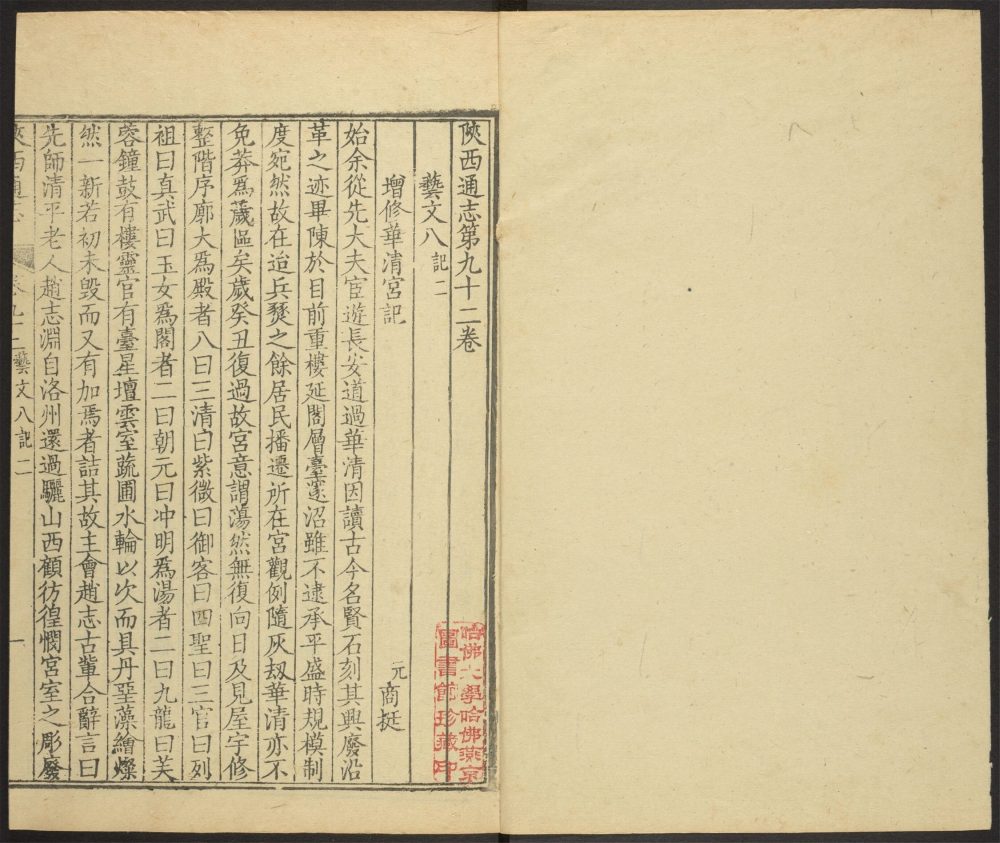 陝西通志第九十二卷
藝文八 記二
增修華清宮記
元 商挺
始余從先大夫宦遊長安道過華清因讀古今名賢石刻其興廢沿
革之迹畢陳於目前重樓延閣層臺邃沼雖不逮承平盛時規模制
度宛然故在迨兵燹之餘居民播遷所在宮觀例隨灰刼華清亦不
免莽爲薉區矣歲癸丑復過故宮意謂蕩然無復向日及見屋宇修
整階序廓大爲殿者八曰三清曰紫微曰御容曰四聖曰三官曰列
祖曰真武曰玉女爲閣者二曰朝元曰冲明爲湯者二曰九龍曰芙
蓉鐘鼓有樓靈官有臺星壇雲室蔬圃水輪以次而具丹堊藻繪燦
然一新若初未毀而又有加焉者詰其故主會趙志古輩合辭言曰
先師清平老人趙志淵自洛州還過驪山西顧彷徨憫宮室之彫廢
陝西通志
卷九二 藝文八 記二
一
哈佛大學哈佛燕京
圖書館珍藏印